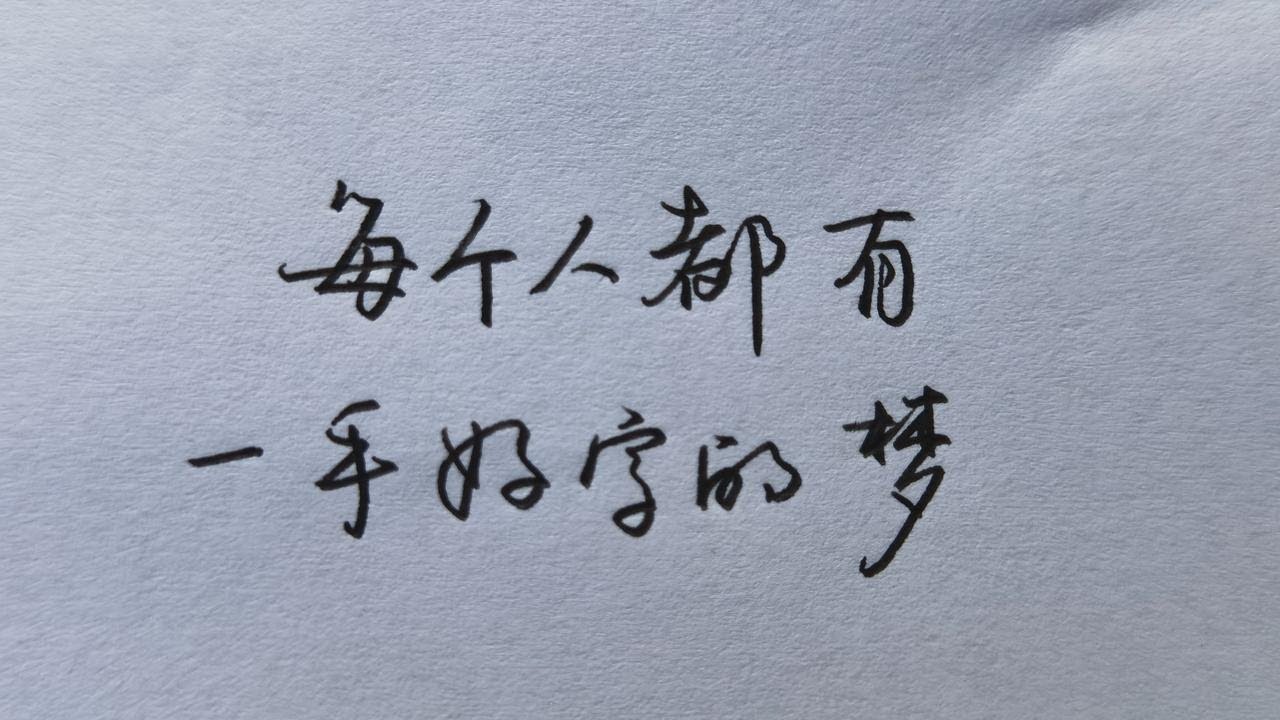 每个人都有
一手好字的梦